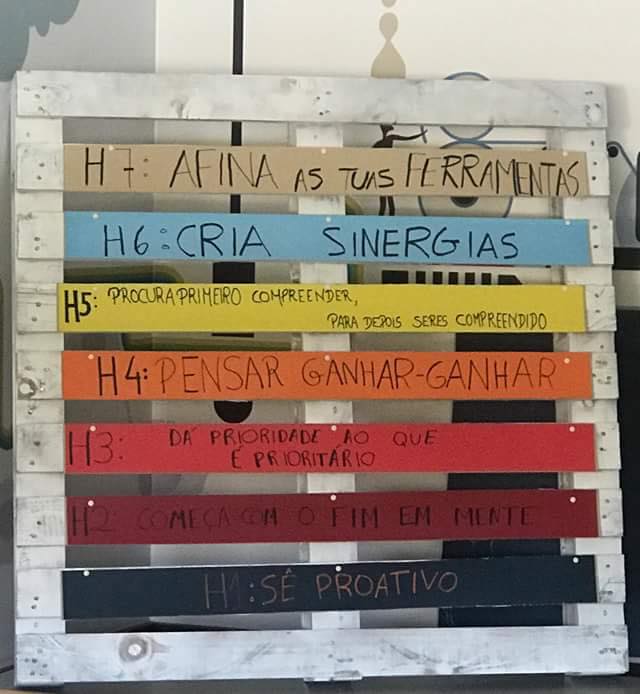 H7: AFINA AS TUAS FERRAMENTAS
H6: CRIA SINERGIAS
H5: PROCURA PRIMEIRO COMPREENDER,
PARA DEPOIS SERES COMPREENDIDO
H4: PENSAR GANHAR-GANHAR
H3: DÁ PRIORIDADE AO QUE
É PRIORITÁRIO
H2: COMEÇA COM O FIM EM MENTE
H1: SÊ PROATIVO